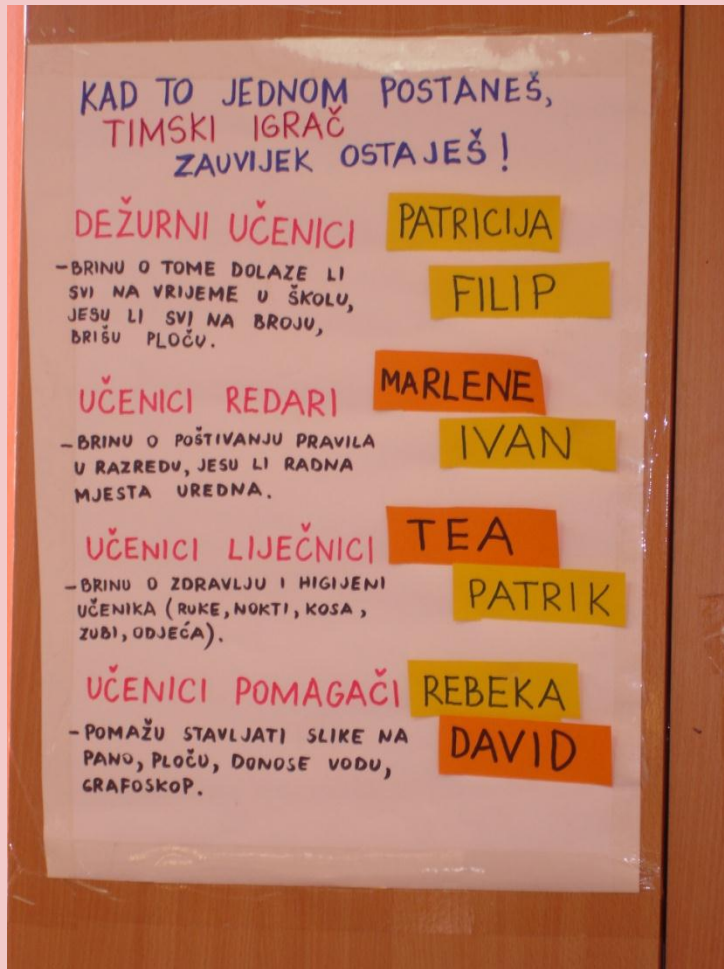 KAD TO JEDNOM POSTANEŠ,
TIMSKI IGRAČ
ZAUVIJEK OSTAJEŠ!
DEŽURNI UČENICI PATRICIJA
-BRINU O TOME DOLAZE LI
SVI NA VRIJEME U ŠKOLU,
JESU LI SVI NA BROJU,
BRIŠU PLOČU.
FILIP
UČENICI REDARI MARLENE
-BRINU O POŠTIVANJU PRAVILA
U RAZREDU, JESU LI RADNA
MJESTA UREDNA.
IVAN
UČENICI LIJEČNICI TEA
-BRINU O ZDRAVLJU I HIGIJENI
UČENIKA (RUKE, NOKTI, KOSA,
ZUBI, ODJEĆA).
PATRIK
UČENICI POMAGAČI REBEKA
-POMAŽU STAVLJATI SLIKE NA
PANO, PLOČU, DONOSE VODU,
GRAFOSKOP.
DAVID